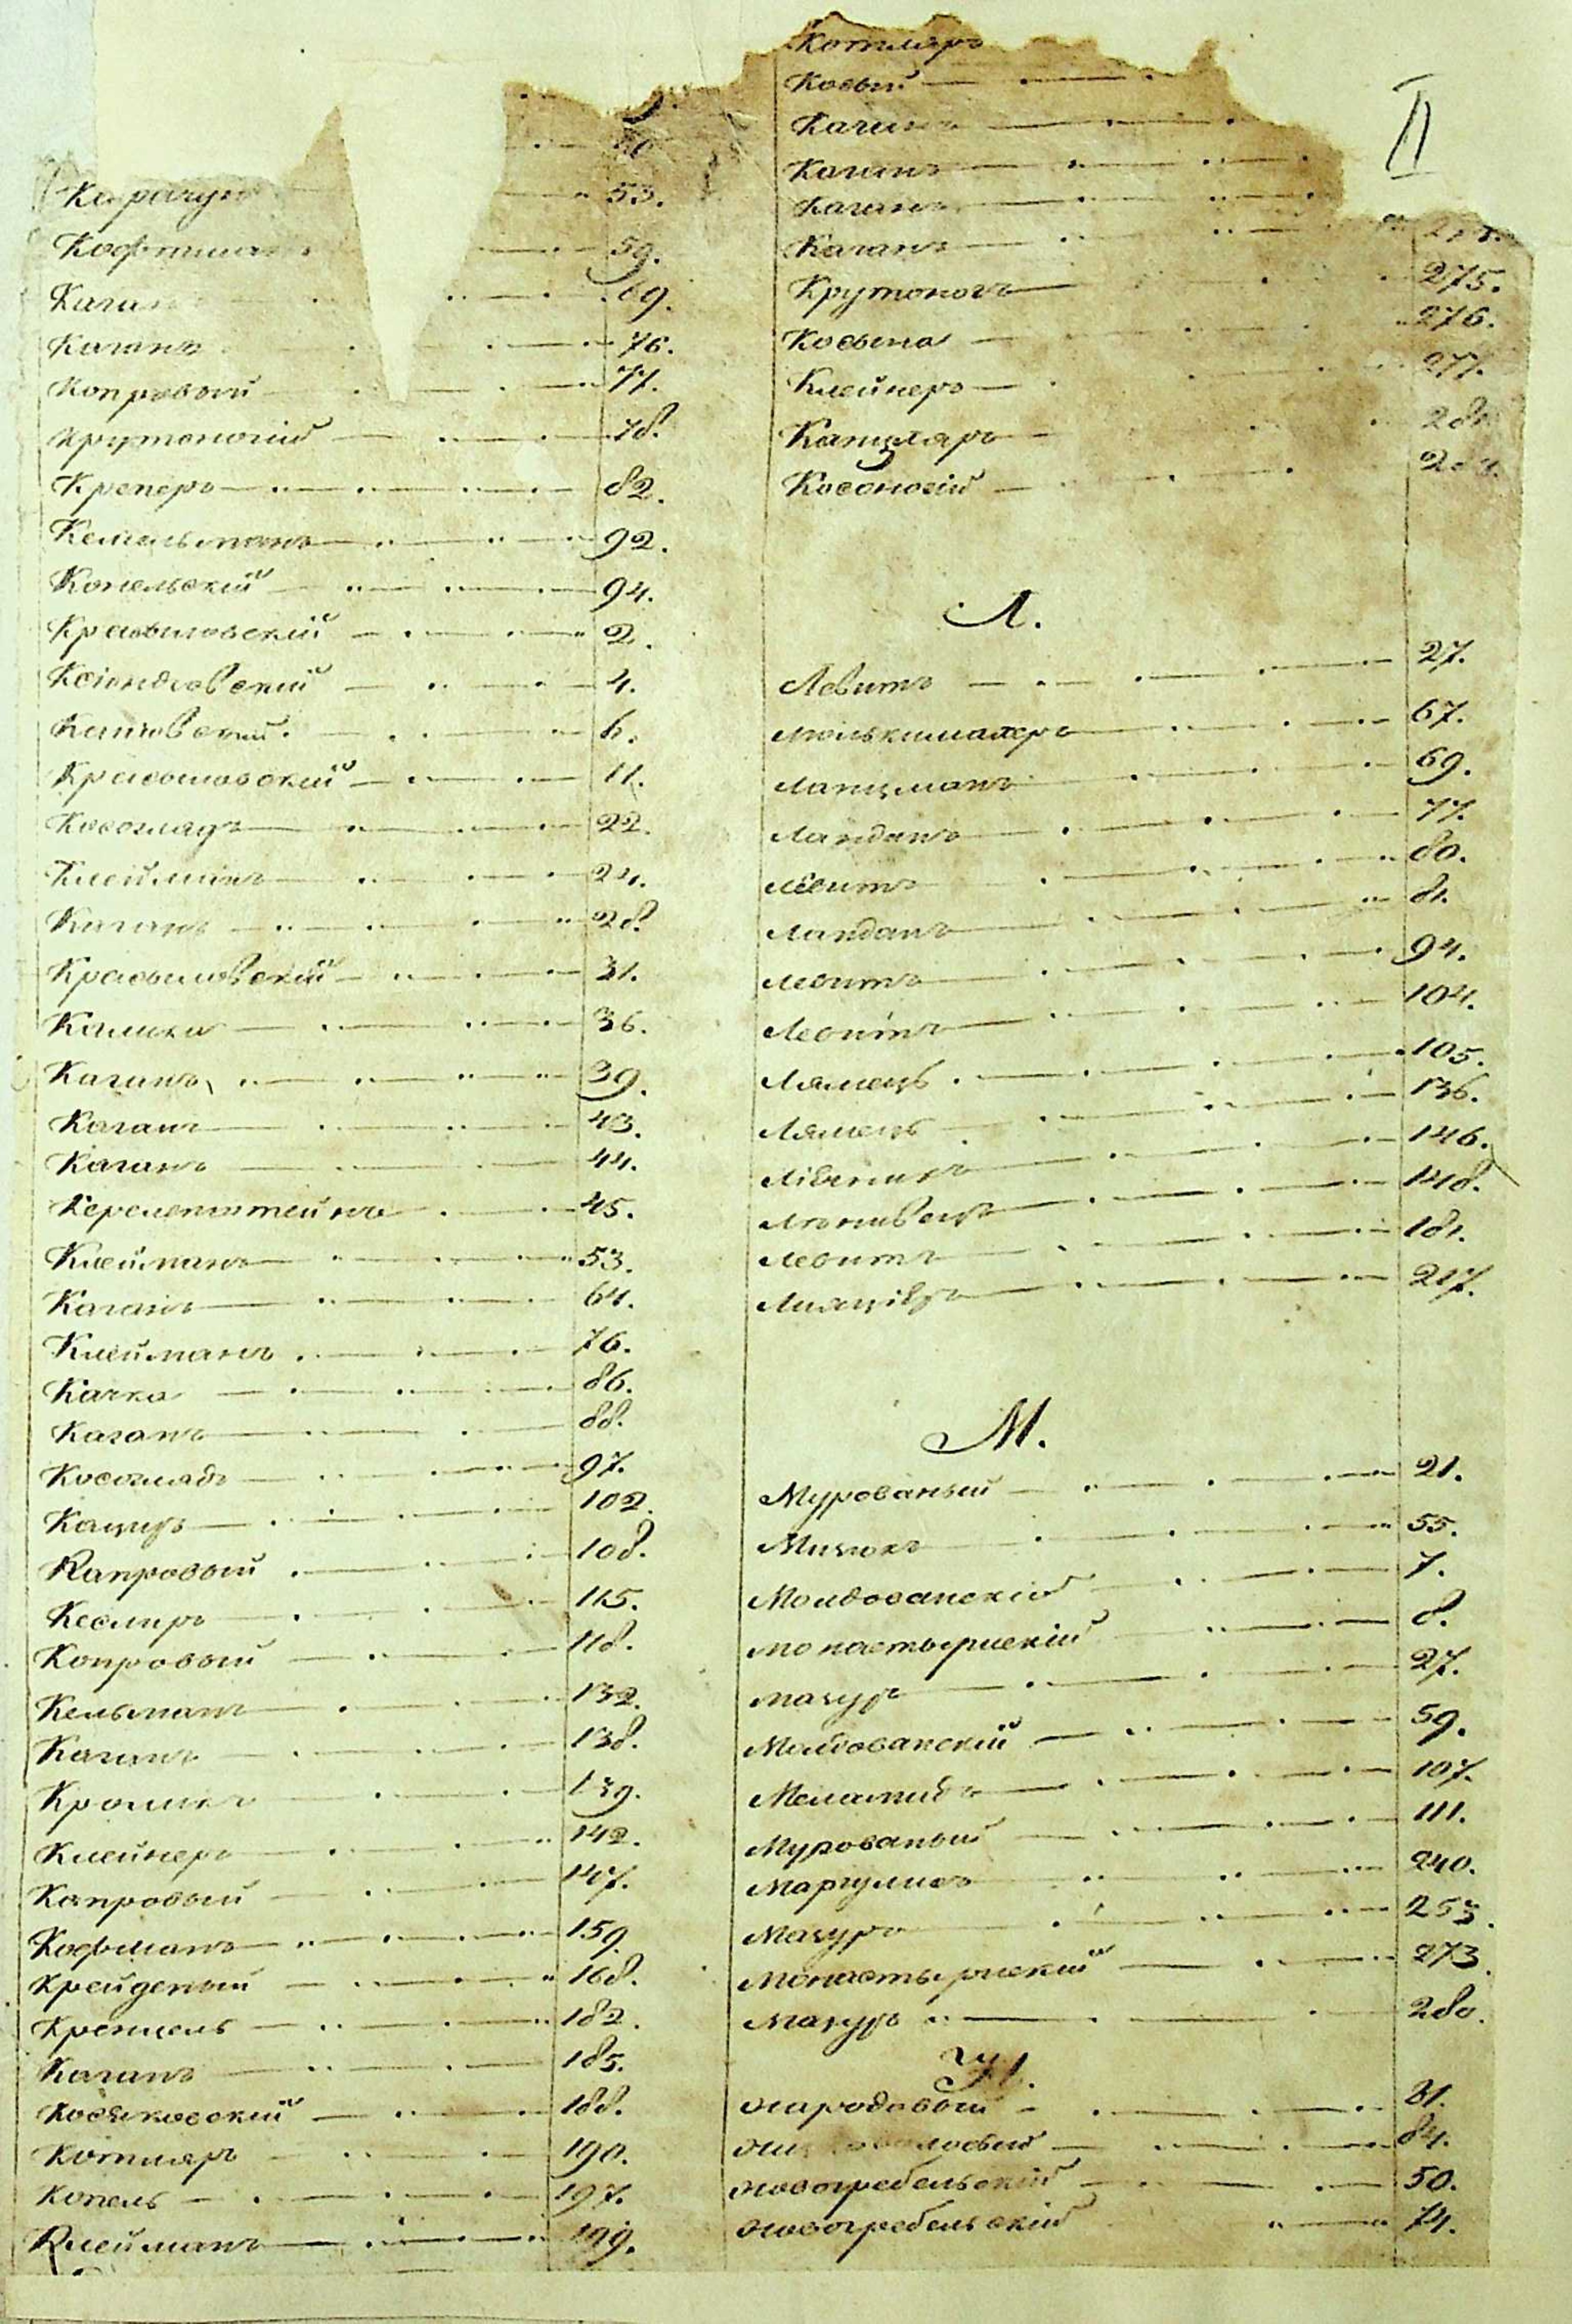 53.
Кофтман 59.
Каган 69.
Каганъ 76.
Копровый 77.
Крутоногій 78.
Креперъ 82.
Кемельманъ 92.
Копельскій 94.
Красиловскій 2.
Ксіондзовскій 4.
6.
Красиловскій 11.
Косогладъ 22.
Клейманъ 24.
Каганъ 28.
Красиловскій 31.
36.
Каганъ 39.
Каганъ 43.
Каганъ 44.
45.
Клейманъ 53.
Каганъ 64.
Клейманъ 76.
Качка 86.
Каганъ 88.
Косогладъ 97.
Кацигъ 102.
Капровый 108.
Кеслиръ 115.
Копровый 118.
Кельманъ 132.
Каганъ 138.
139.
Клейнеръ 142.
Капровый 147.
Кофманъ 159.
Крейденый 168.
Кренцель 182.
Каганъ 185.
188.
Котляръ 190.
Копель 197.
Клейманъ 199.
Котляръ
Косый
Качанъ
Коганъ
Каганъ
Каганъ
Крутоногъ 275.
Косына 276.
Клейнеръ 277.
Канцляръ
Косоногій
II
Л.
Левитъ 27.
Мюлькимахеръ 67.
Ланцманъ 69.
Ланданъ 77.
Левитъ 80.
Ланданъ 81.
Левитъ 94.
Левитъ 104.
Лямець 105.
Лямець 136.
146.
148.
Левитъ 181.
217.
М.
Мурованый 21.
55.
Молдованскій 7.
Монастырискій 8.
Мазуръ 27.
Молдованскій 59.
Меламидъ 107.
Мурованый 111.
Маргулисъ 240.
Мазуръ 253.
Монастырискій 273.
Мазуръ 280.
Н.
Народовый 81.
84.
Новогребельскій 50.
Новогребельскій 74.